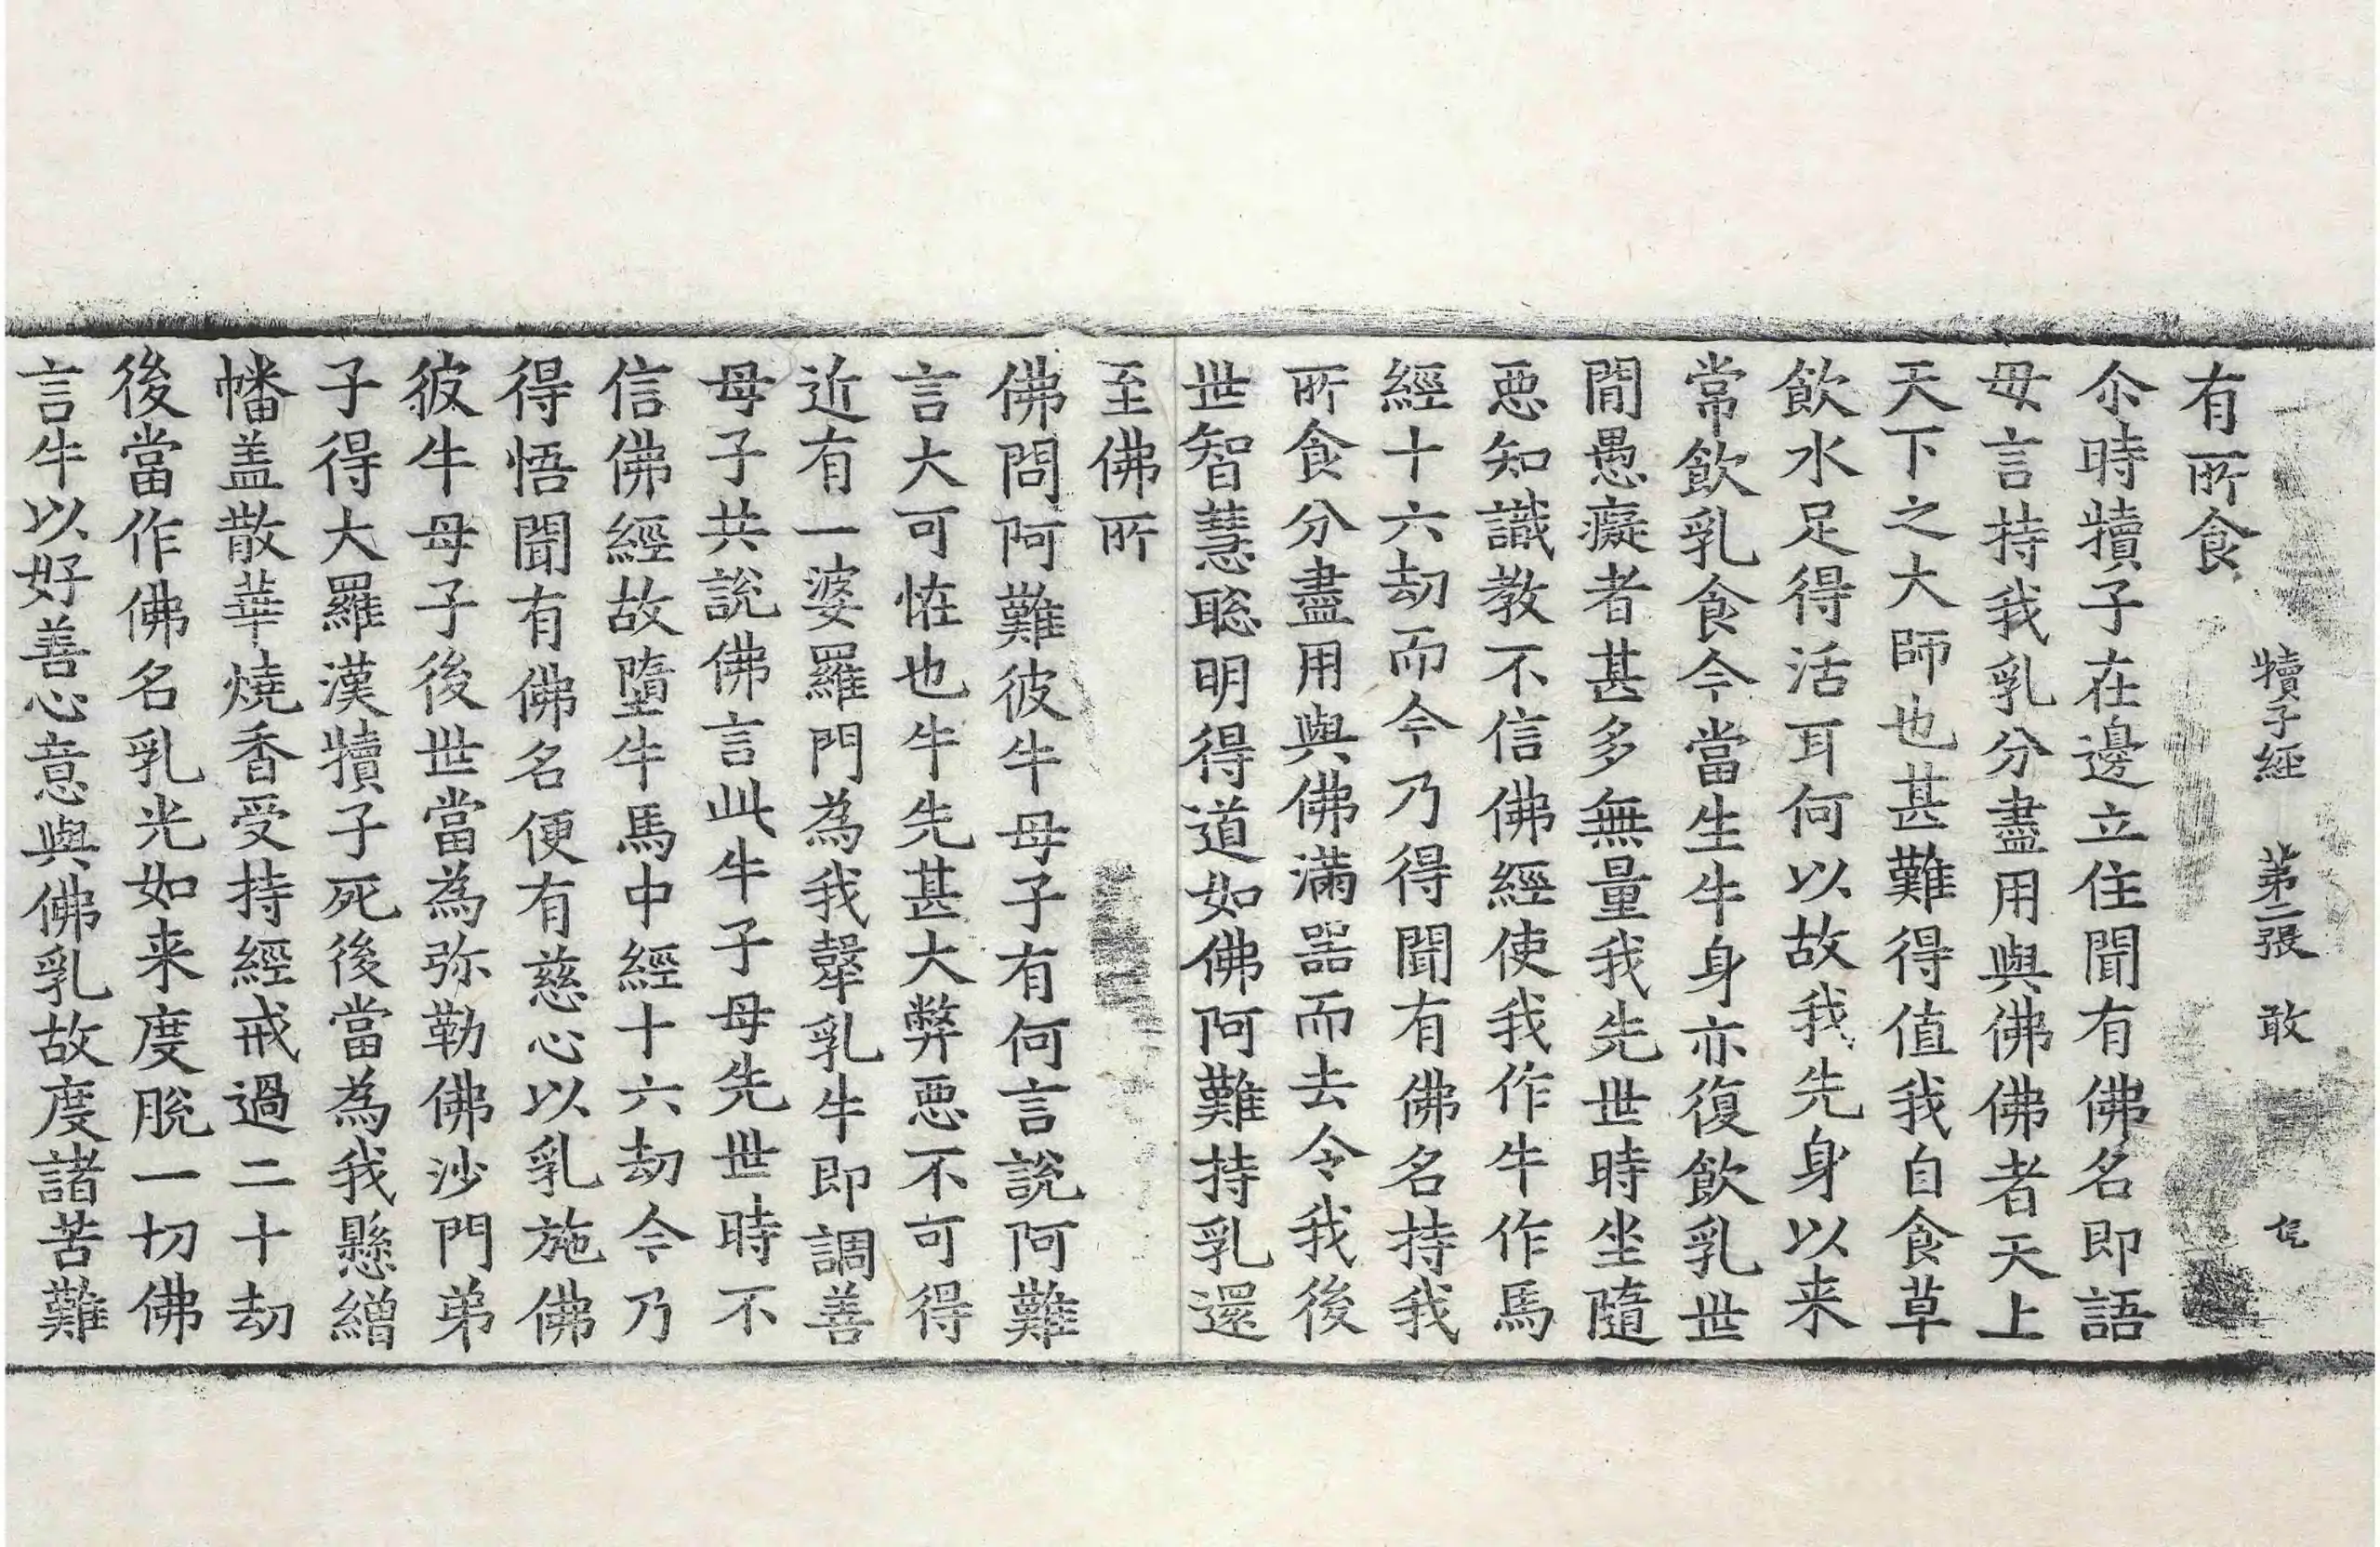 犢子經 第二張 敢
有所食
尒時犢子在邊立住聞有佛名即語
母言持我乳分盡用與佛佛者天上
天下之大師也甚難得值我自食草
飲水足得活耳何以故我先身以来
常飲乳食今當生牛身亦復飲乳世
閒愚癡者甚多無量我先世時坐隨
悪知識教不信佛經使我作牛作馬
經十六劫而今乃得聞有佛名持我
所食分盡用與佛滿器而去令我後
世智慧聡明得道如佛阿難持乳還
至佛所
佛問阿難彼牛母子有何言說阿難
言大可恠也牛先甚大弊悪不可得
近有一婆羅門為我𤛗乳牛即調善
母子共說佛言此牛子母先世時不
信佛經故墮牛馬中經十六劫今乃
得悟聞有佛名便有慈心以乳施佛
彼牛母子後世當為弥勒佛沙門弟
子得大羅漢犢子死後當為我懸繒
幡盖散華燒香受持經戒過二十劫
後當作佛名乳光如来度脫一切佛
言牛以好善心意與佛乳故度諸苦難